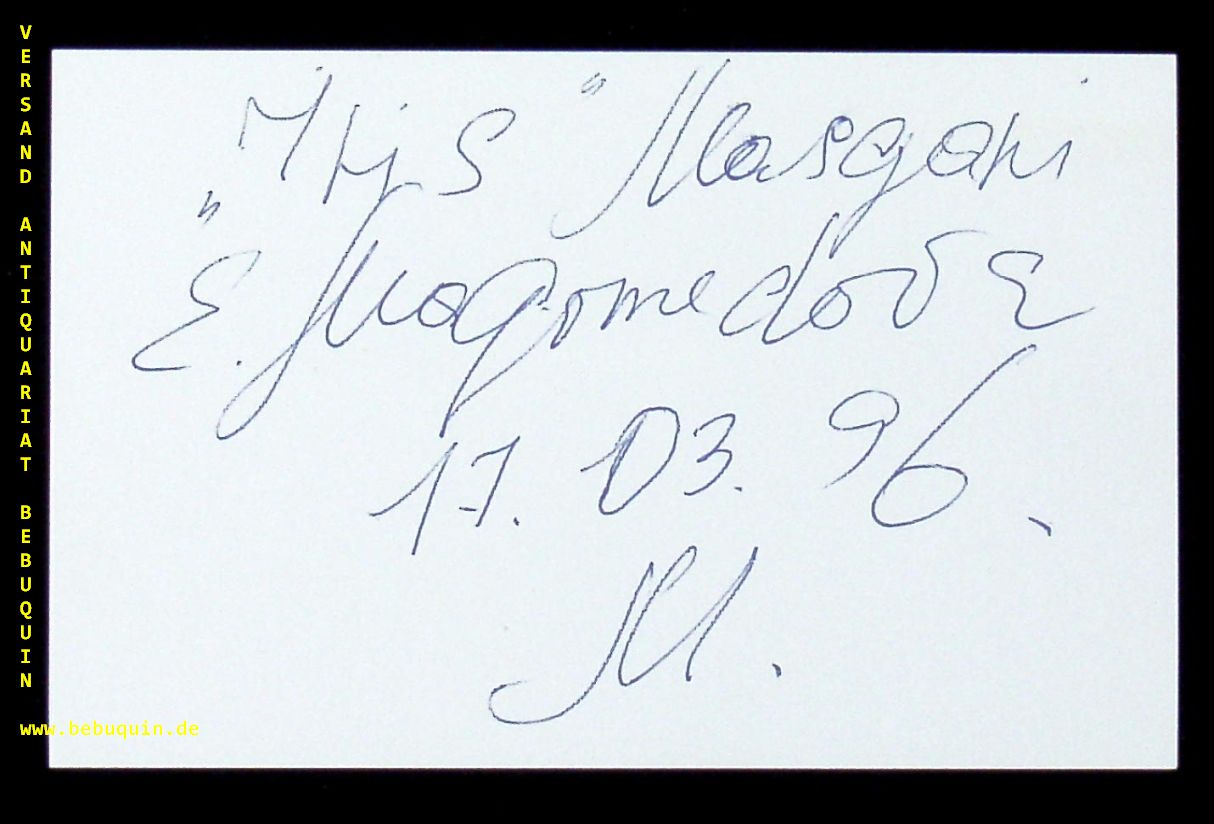 VERSAND ANTIQUARIAT BEBUQUIN
www.bebuquin.de
„Iris“ Masgani
E. Magomedov E
17. 03. 96.
M.